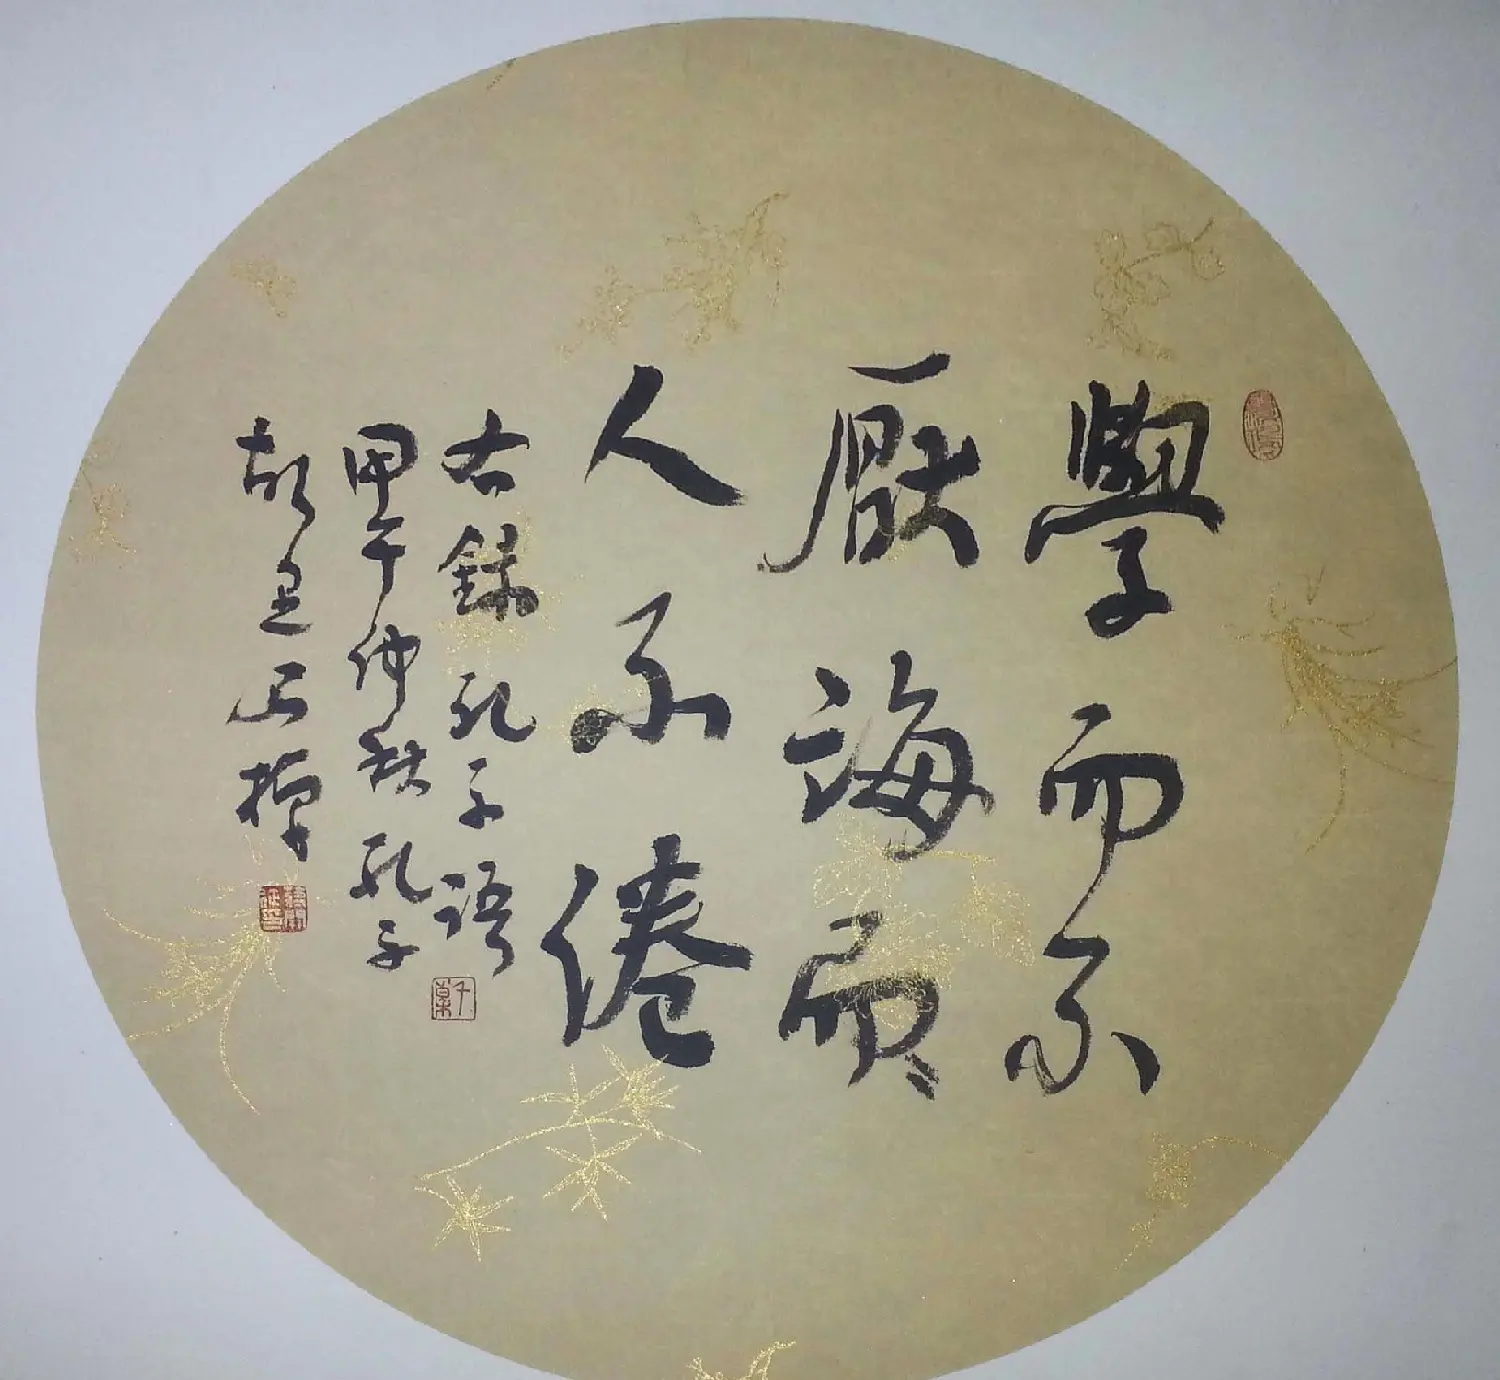 學而不
厭誨而
人不倦
右錄孔子語
甲午仲秋孔子
故里